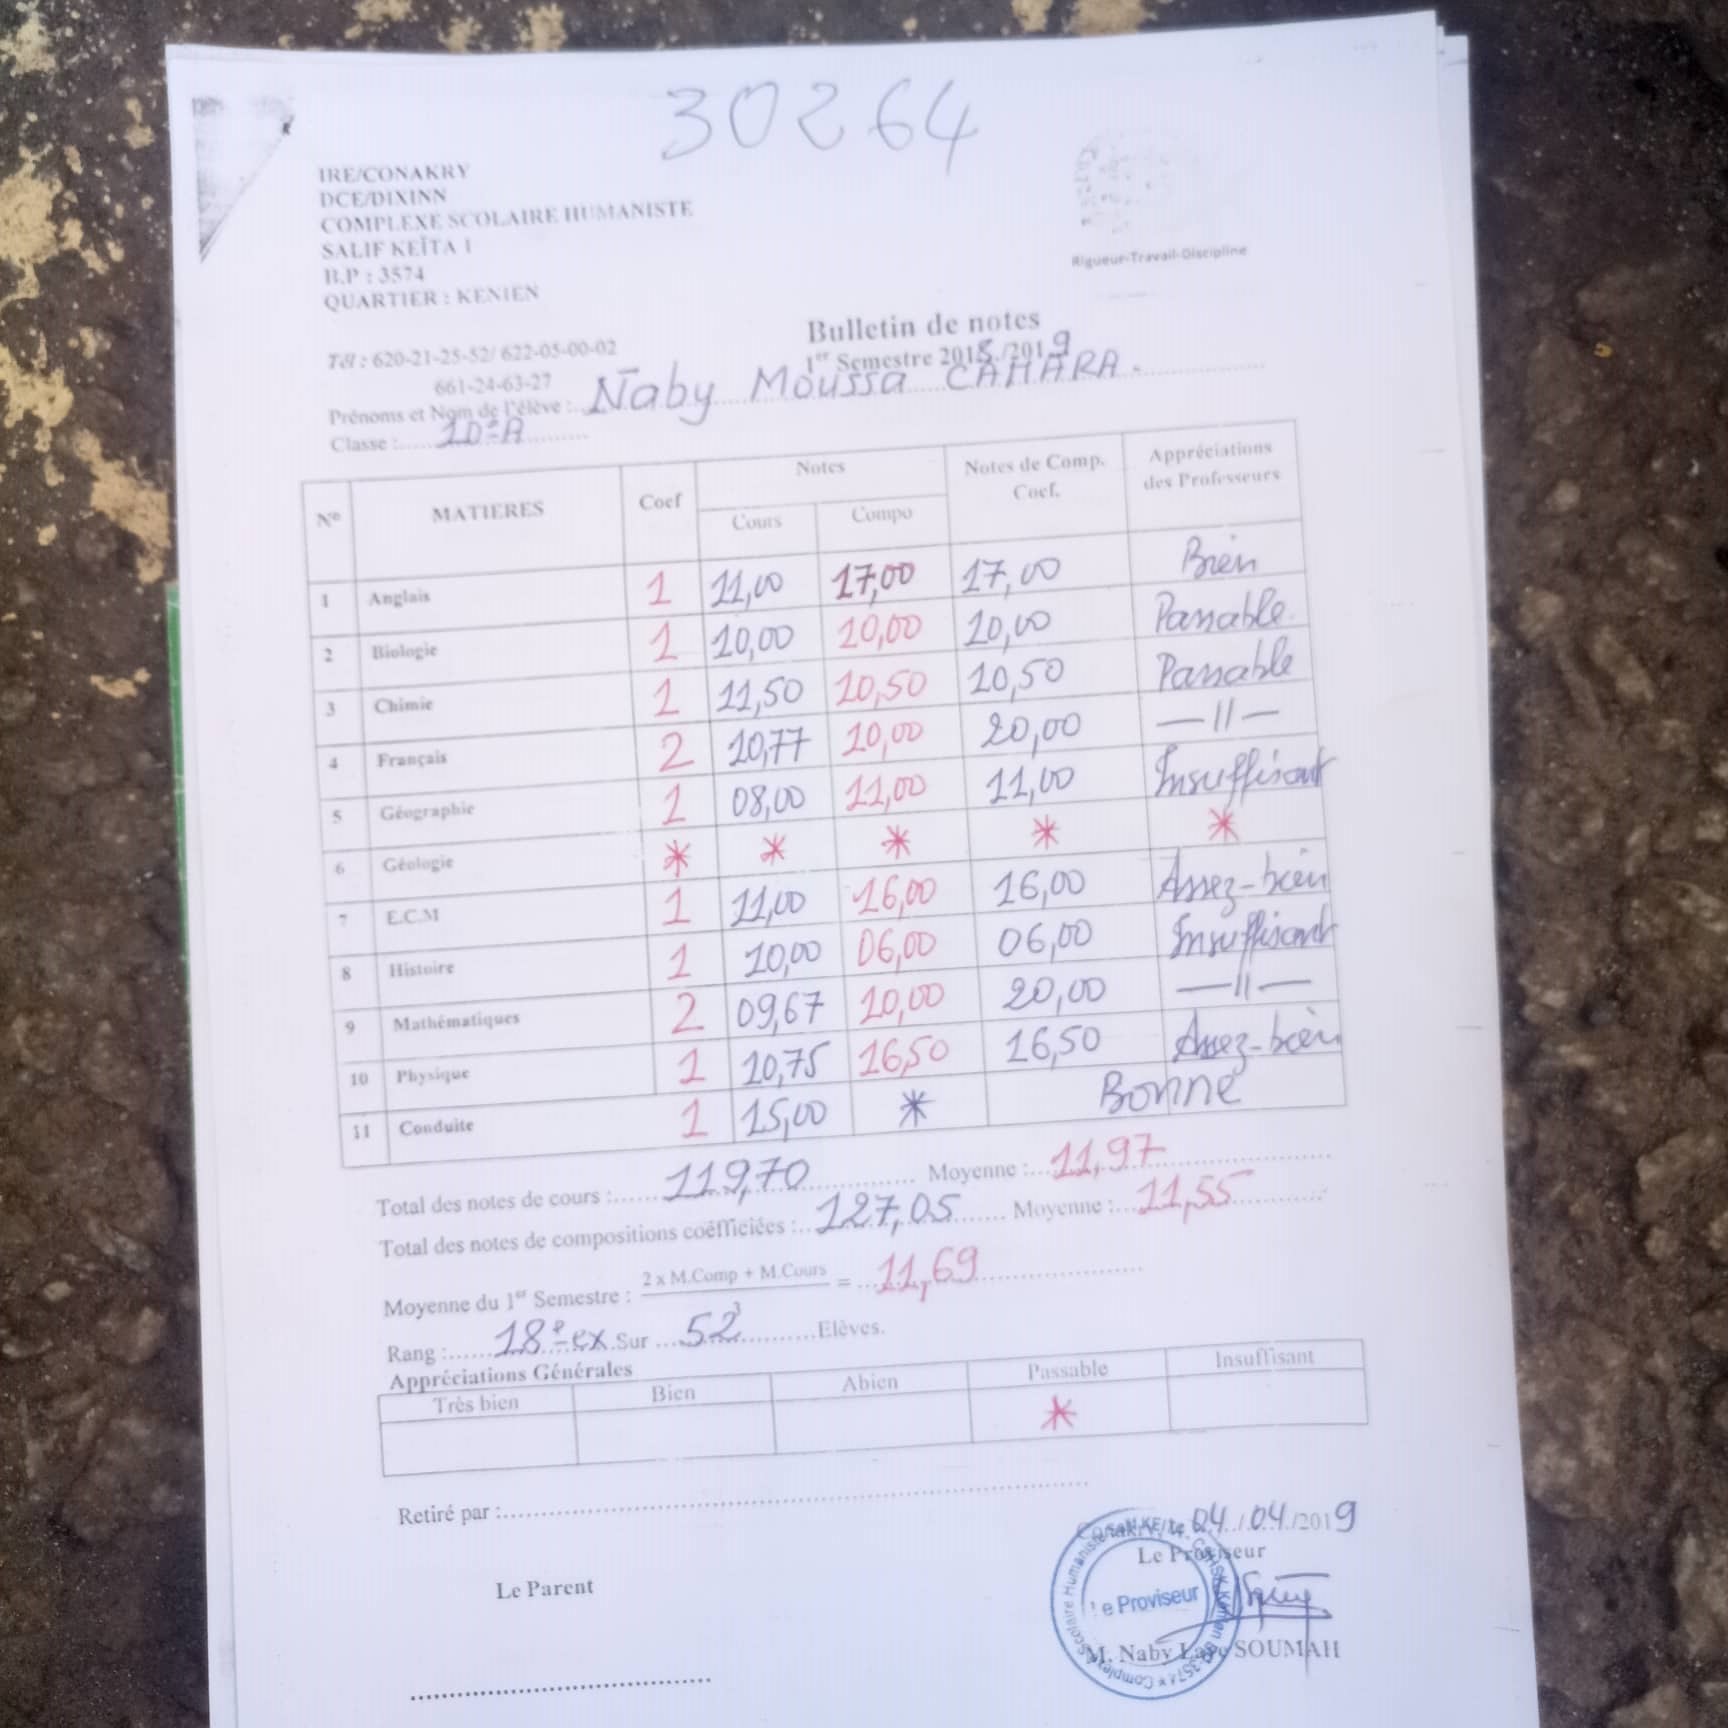 30264
IRE/CONAKRY
DCE/DIXINN
COMPLEXE SCOLAIRE HUMANISTE
SALIF KEÏTA 1
B.P : 3574
QUARTIER : KENIEN
Rigueur-Travail-Discipline
Tél : 620-21-25-52/ 622-05-00-02
661-24-63-27
Bulletin de notes
1er Semestre 2018./2019
Prénoms et Nom de l'élève : Naby Moussa CAMARA.
Classe : 10e A
N° MATIERES Coef Notes Notes de Comp. Coef. Appréciations des Professeurs
Cours Compo
1 Anglais 1 11,00 17,00 17,00 Bien
2 Biologie 1 10,00 10,00 10,00 Passable
3 Chimie 1 11,50 10,50 10,50 Passable
4 Français 2 10,77 10,00 20,00 —11—
5 Géographie 1 08,00 11,00 11,00 Insuffisant
6 Géologie * * * * *
7 E.C.M 1 11,00 16,00 16,00 Assez-bien
8 Histoire 1 10,00 06,00 06,00 Insuffisant
9 Mathématiques 2 09,67 10,00 20,00 —11—
10 Physique 1 10,75 16,50 16,50 Assez-bien
11 Conduite 1 15,00 * Bonne
Total des notes de cours : 119,70 Moyenne : 11,97
Total des notes de compositions coéfficiées : 127,05 Moyenne : 11,55
Moyenne du 1er Semestre : 2 x M.Comp + M.Cours = 11,69
3
Rang : 18e ex Sur 52 Elèves.
Appréciations Générales
Très bien Bien Abien Passable Insuffisant
*
Retiré par :
Conakry, le 04/04/2019
Le Parent
Le Proviseur
Le Proviseur
M. Naby Laye SOUMAH